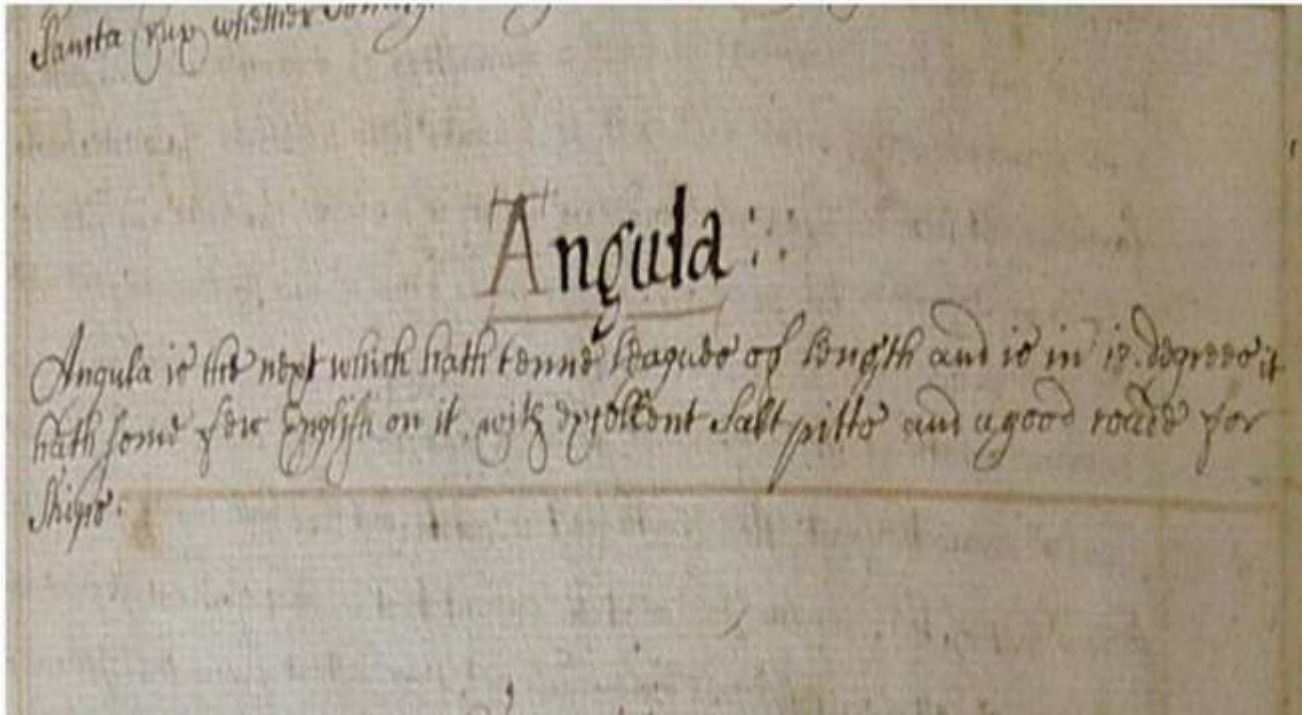 Sancta Crux whether
Angula
Angula is the next which hath tenne leagues of length and is in 18. degrees it
hath some few English on it, with exsellent Salt pitts and a good roade for
Ships.